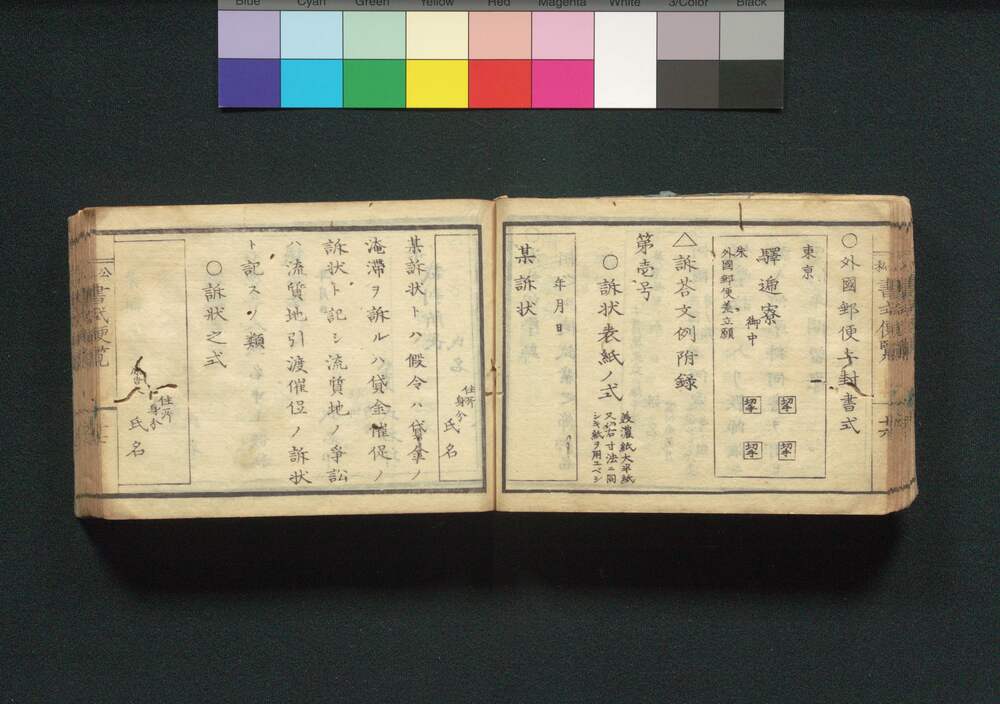 Blue Cyan Green Yellow Red Magenta White 3/Color Black
○外國郵便上封書式
東京
驛逓寮 御中
朱
外國郵便差立願
△訴荅文例附録
第壱号
○訴状表紙ノ式
美濃紙大半紙
又ハ右寸法ニ同
シキ紙ヲ用ユベシ
年月日
某訴状
住所
身分
氏名
某訴状トハ假令ハ貸金ノ
淹滞ヲ訴ルハ貸金催促ノ
訴状ト記シ流質地ノ爭訟
ハ流質地引渡催促ノ訴状
ト記スノ類
○訴状之式
住所
身分
氏名
公
書式便覧